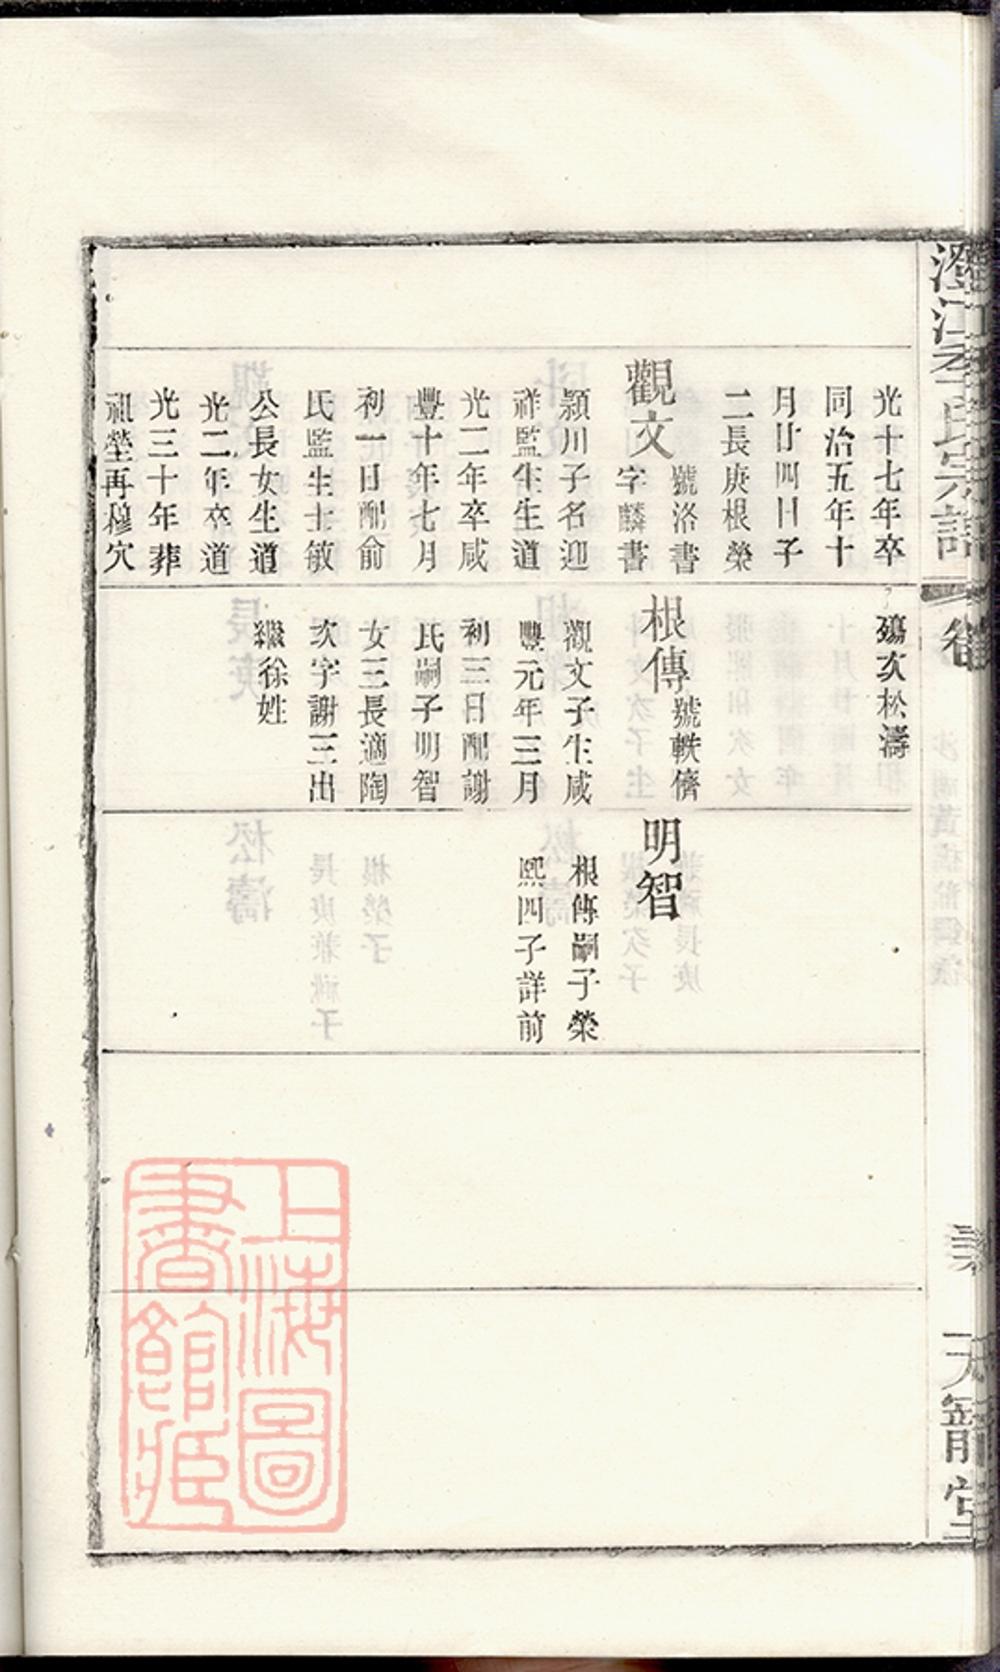 澄江李氏宗譜
卷
天籟堂
光十七年卒
同治五年十
月廿四日子
二長庚根榮
觀文
號洛書
字麟書
穎川子名迎
祥監生生道
光二年卒咸
豐十年七月
初一日配俞
氏監生士敏
公長女生道
光二年卒道
光三十年葬
祖塋再穆穴
殤次松濤
根傳
號軼儕
觀文子生咸
豐元年三月
初三日配謝
氏嗣子明智
女三長適陶
次字謝三出
繼徐姓
明智
根傳嗣子榮
熙四子詳前
上海圖
書館藏